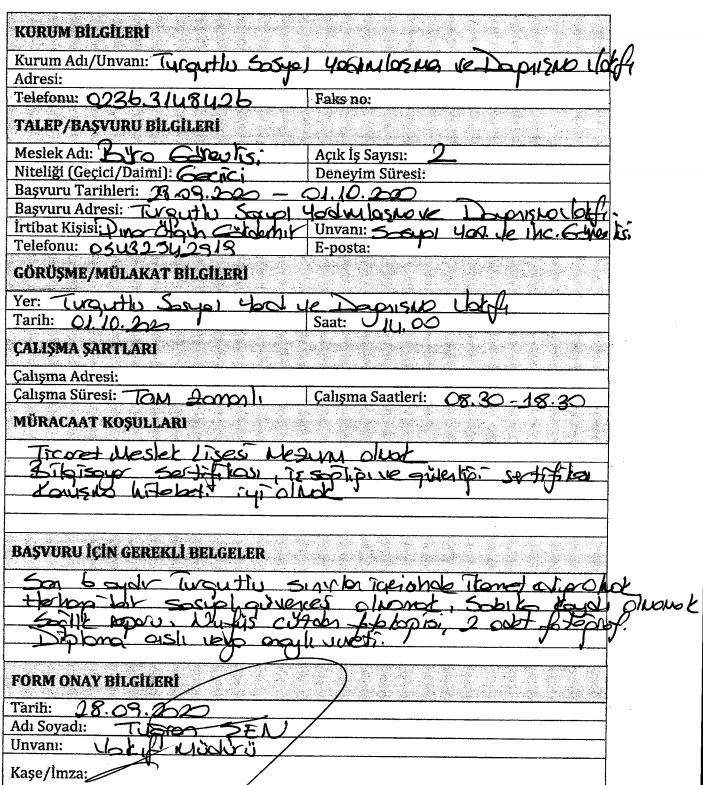 KURUM BİLGİLERİ
Kurum Adı/Unvanı: Turgutlu Sosyal Yardımlaşma ve Dayanışma Vakfı
Adresi:
Telefonu: 0236.3148426 Faks no:
TALEP/BAŞVURU BİLGİLERİ
Meslek Adı: Büro Görevlisi Açık İş Sayısı: 2
Niteliği (Geçici/Daimi): Geçici Deneyim Süresi:
Başvuru Tarihleri: 29.09.2020 – 01.10.2020
Başvuru Adresi: Turgutlu Sosyal Yardımlaşma ve Dayanışma Vakfı.
İrtibat Kişisi: Pınar Unvanı: Sosyal Yard. ve İnc. Görevlisi
Telefonu: 05432542919 E-posta:
GÖRÜŞME/MÜLAKAT BİLGİLERİ
Yer: Turgutlu Sosyal Yard ve Dayanışma Vakfı
Tarih: 01.10.2020 Saat: 14.00
ÇALIŞMA ŞARTLARI
Çalışma Adresi:
Çalışma Süresi: Tam Zamanlı Çalışma Saatleri: 08.30 - 18.30
MÜRACAAT KOŞULLARI
Ticaret Meslek Lisesi Mezunu olmak
Bilgisayar sertifikası, iş sağlığı ve güvenliği sertifikası
Konuşma hitabeti iyi olmak
BAŞVURU İÇİN GEREKLİ BELGELER
Son 6 aydır Turgutlu sınırları içerisinde ikamet ediyor olmak
Herhangi bir sosyal güvencesi olmamak, Sabıka kaydı olmamak
Sağlık raporu, Nüfus cüzdan fotokopisi, 2 adet fotoğraf.
Diploma aslı veya onaylı sureti.
FORM ONAY BİLGİLERİ
Tarih: 28.09.2020
Adı Soyadı: ŞEN
Unvanı: Vakıf Müdürü
Kaşe/İmza: